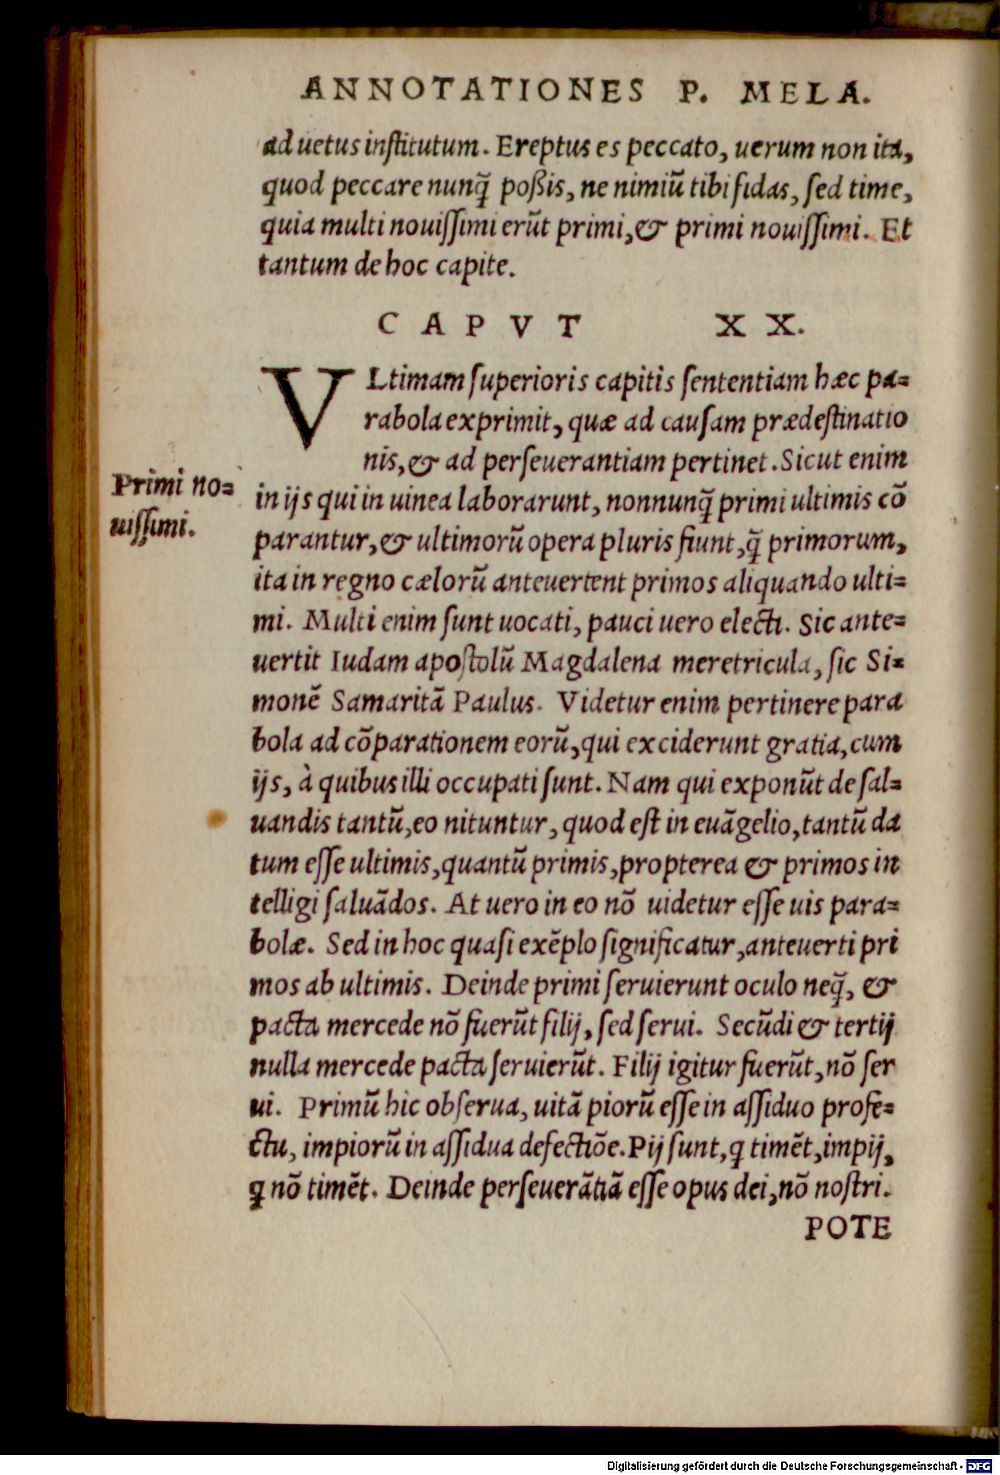 ANNOTATIONES P. MELA.
ad uetus institutum. Ereptus es peccato, uerum non ita,
quod peccare nunq̃ poßis, ne nimiũ tibi fidas, sed time,
quia multi nouissimi erũt primi, & primi nouissimi. Et
tantum de hoc capite.
CAPVT XX.
VLtimam superioris capitis sententiam hæc pa=
rabola exprimit, quæ ad causam prædestinatio
nis, & ad perseuerantiam pertinet. Sicut enim
Primi no=
uissimi.
in ijs qui in uinea laborarunt, nonnunq̃ primi ultimis cõ
parantur, & ultimorũ opera pluris fiunt, q̃ primorum,
ita in regno cælorũ anteuertent primos aliquando ulti=
mi. Multi enim sunt uocati, pauci uero electi. Sic ante=
uertit Iudam apostolũ Magdalena meretricula, sic Si=
monẽ Samaritã Paulus. Videtur enim pertinere para
bola ad cõparationem eorũ, qui exciderunt gratia, cum
ijs, à quibus illi occupati sunt. Nam qui exponũt de sal=
uandis tantũ, eo nituntur, quod est in euãgelio, tantũ da
tum esse ultimis, quantũ primis, propterea & primos in
telligi saluãdos. At uero in eo nõ uidetur esse uis para=
bolæ. Sed in hoc quasi exẽplo significatur, anteuerti pri
mos ab ultimis. Deinde primi seruierunt oculo neq̃, &
pacta mercede nõ fuerũt filij, sed serui. Secũdi & tertij
nulla mercede pacta seruierũt. Filij igitur fuerũt, nõ ser
ui. Primũ hic obserua, uitã piorũ esse in assiduo profe=
ctu, impiorũ in assidua defectiõe. Pij sunt, q timẽt, impij,
q nõ timẽt. Deinde perseuerãtiã esse opus dei, nõ nostri.
POTE
Digitalisierung gefördert durch die Deutsche Forschungsgemeinschaft - DFG